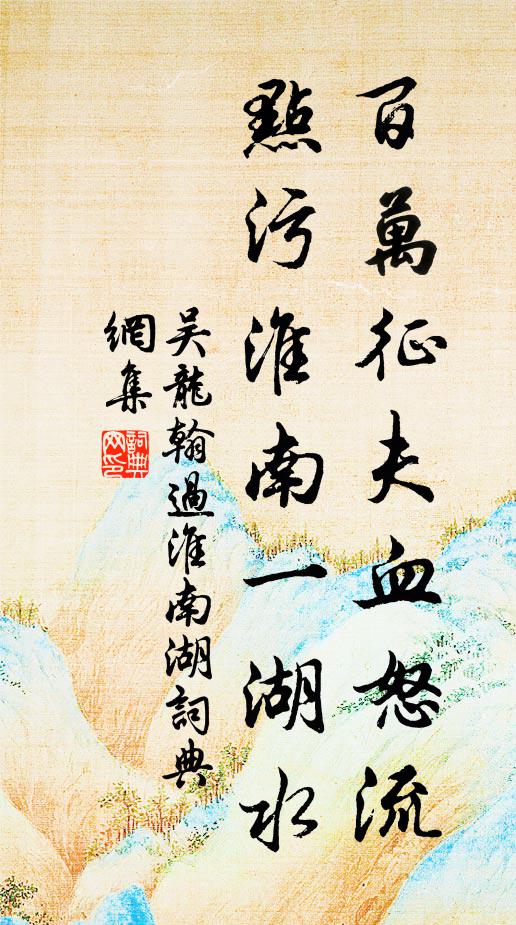 百萬征夫血怒流
點污淮南一湖水
吳龍翰過淮南湖詞典
網集
詞典網印